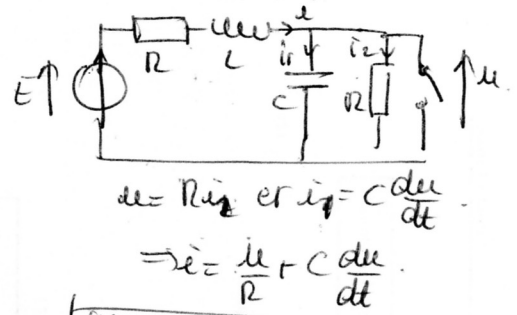 i
R L i₁ i₂
E C R u
u = Ri₂ et i₁ = C du/dt.
⇒ i = u/R + C du/dt.